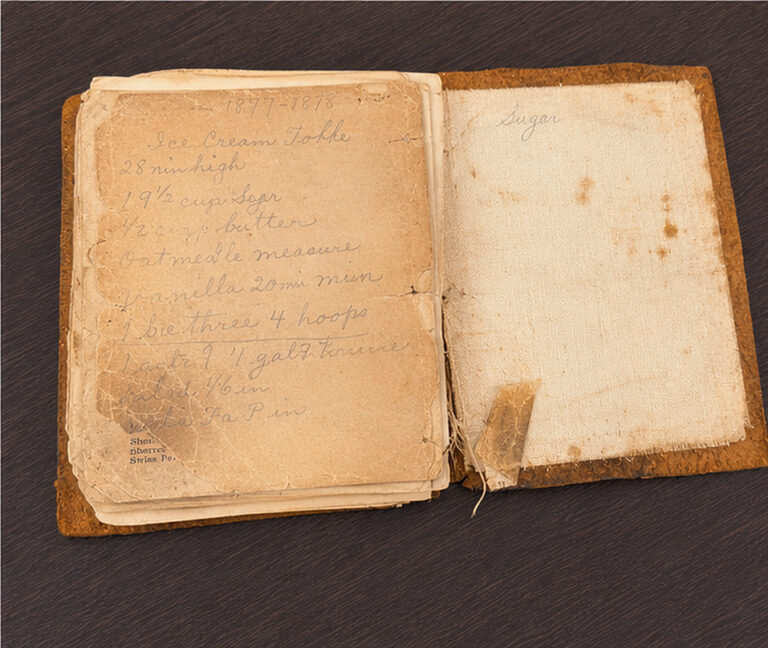 1897-1898
Ice Cream Tohhe
28 min high
1 9½ cup Sugr
½ cup butter
Oatmeale measure
Vanilla 20 min mun
1 bie three 4 hoops
1 galz
1/6 in
Fa P in
Shen
Sherre
Swiss Pa.
Sugar